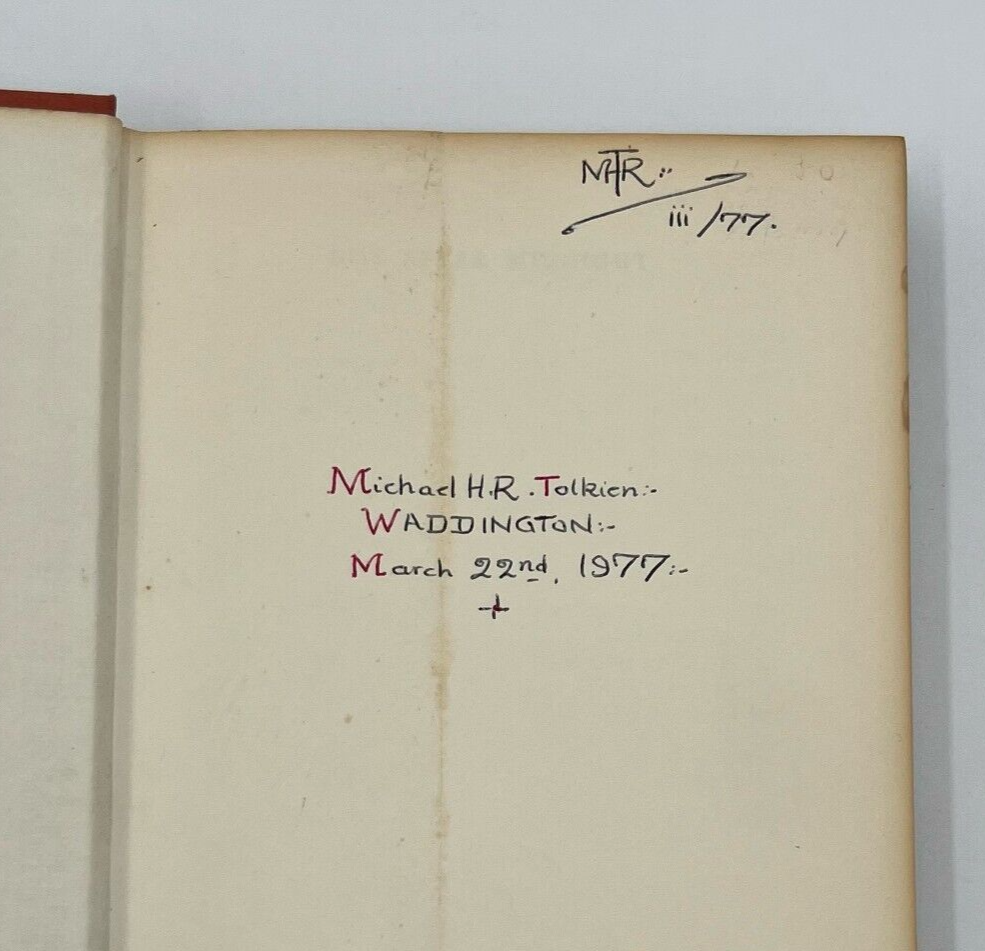 MHTR:·
iii/77.
Michael H.R. Tolkien:-
WADDINGTON:-
March 22nd, 1977:-